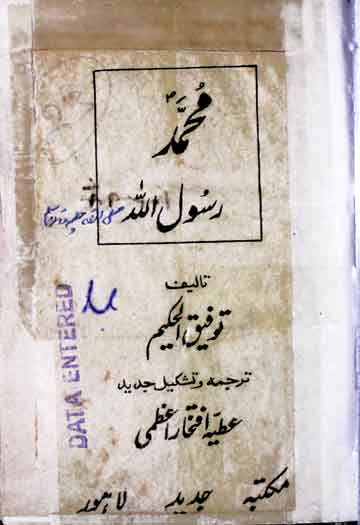 محمدؐ
رسول اللہ صلی اللہ علیہ وآلہ وسلم
تالیف
توفیق الحکیم
ترجمہ و تشکیل جدید
عطیّہ افتخار اعظمی
مکتبہ جدید لاہور
DATA ENTERED